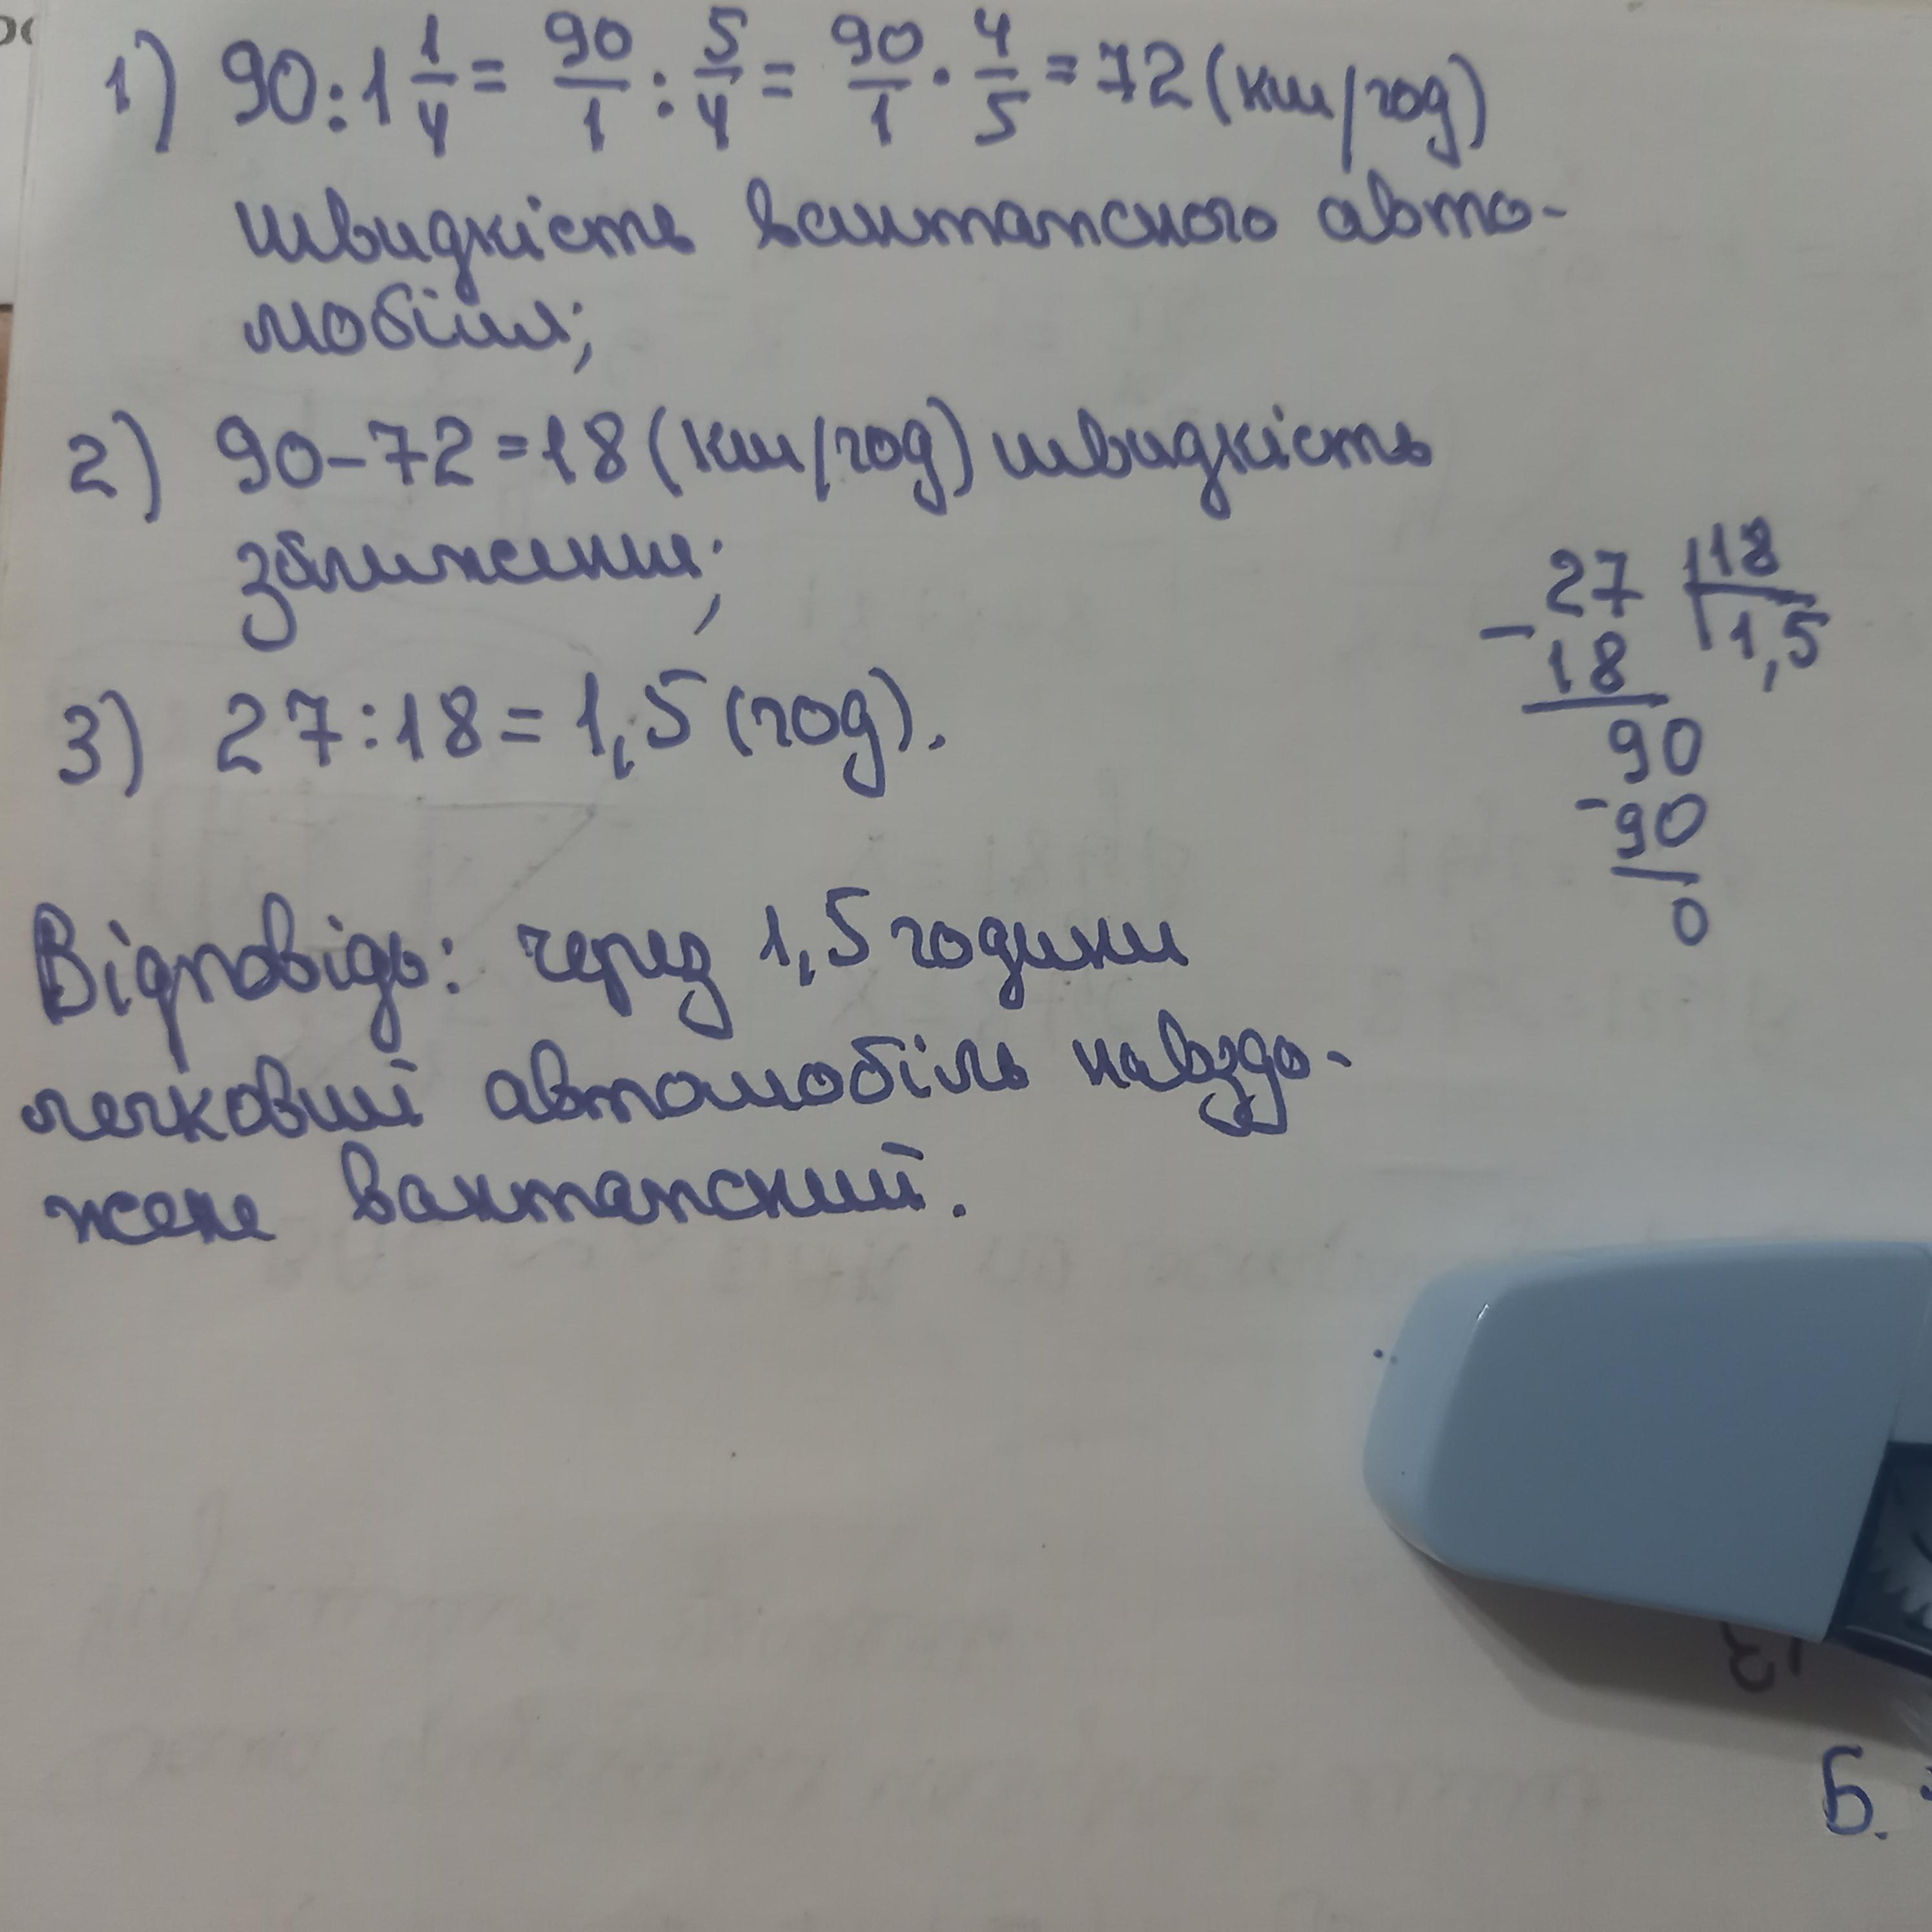 1) 90:1 1/4 = 90/1 : 5/4 = 90/1 · 4/5 = 72 (км/год)
швидкість вантажного авто-
мобіля;
2) 90-72=18 (км/год) швидкість
зближення;
3) 27:18=1,5 (год).
27 18
- 18 1,5
90
-90
0
Відповідь: через 1,5 години
легковий автомобіль навздо-
жене вантажний.
Б.